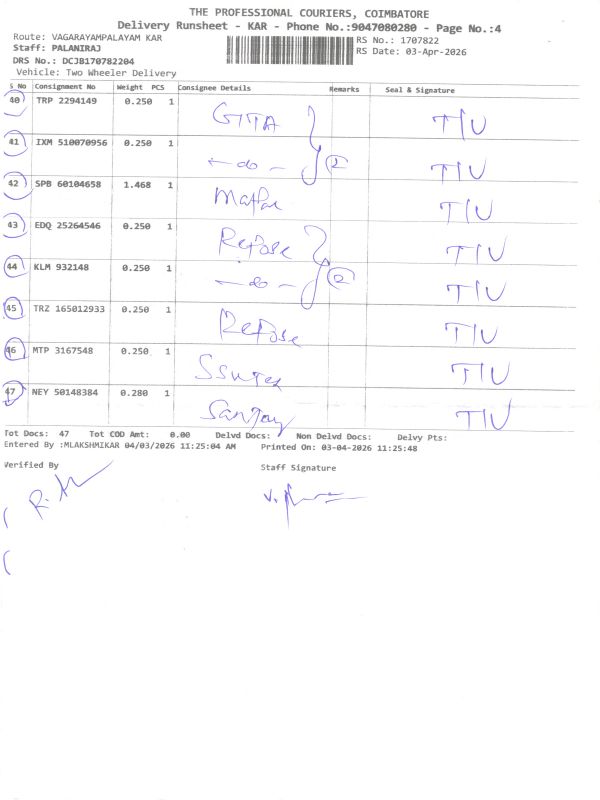 THE PROFESSIONAL COURIERS, COIMBATORE
Delivery Runsheet - KAR - Phone No.:9047080280 - Page No.:4
Route: VAGARAYAMPALAYAM KAR RS No.: 1707822
Staff: PALANIRAJ RS Date: 03-Apr-2026
DRS No.: DCJB170782204
Vehicle: Two Wheeler Delivery
S No Consignment No Weight PCS Consignee Details Remarks Seal & Signature
40 TRP 2294149 0.250 1 T/U
41 IXM 510070956 0.250 1 - do - 2 T/U
42 SPB 60104658 1.468 1 T/U
43 EDQ 25264546 0.250 1 Repose T/U
44 KLM 932148 0.250 1 - do - 2 T/U
45 TRZ 165012933 0.250 1 Repose T/U
46 MTP 3167548 0.250 1 T/U
47 NEY 50148384 0.280 1 Sanjay T/U
Tot Docs: 47 Tot COD Amt: 0.00 Delvd Docs: Non Delvd Docs: Delvy Pts:
Entered By :MLAKSHMIKAR 04/03/2026 11:25:04 AM Printed On: 03-04-2026 11:25:48
Verified By Staff Signature